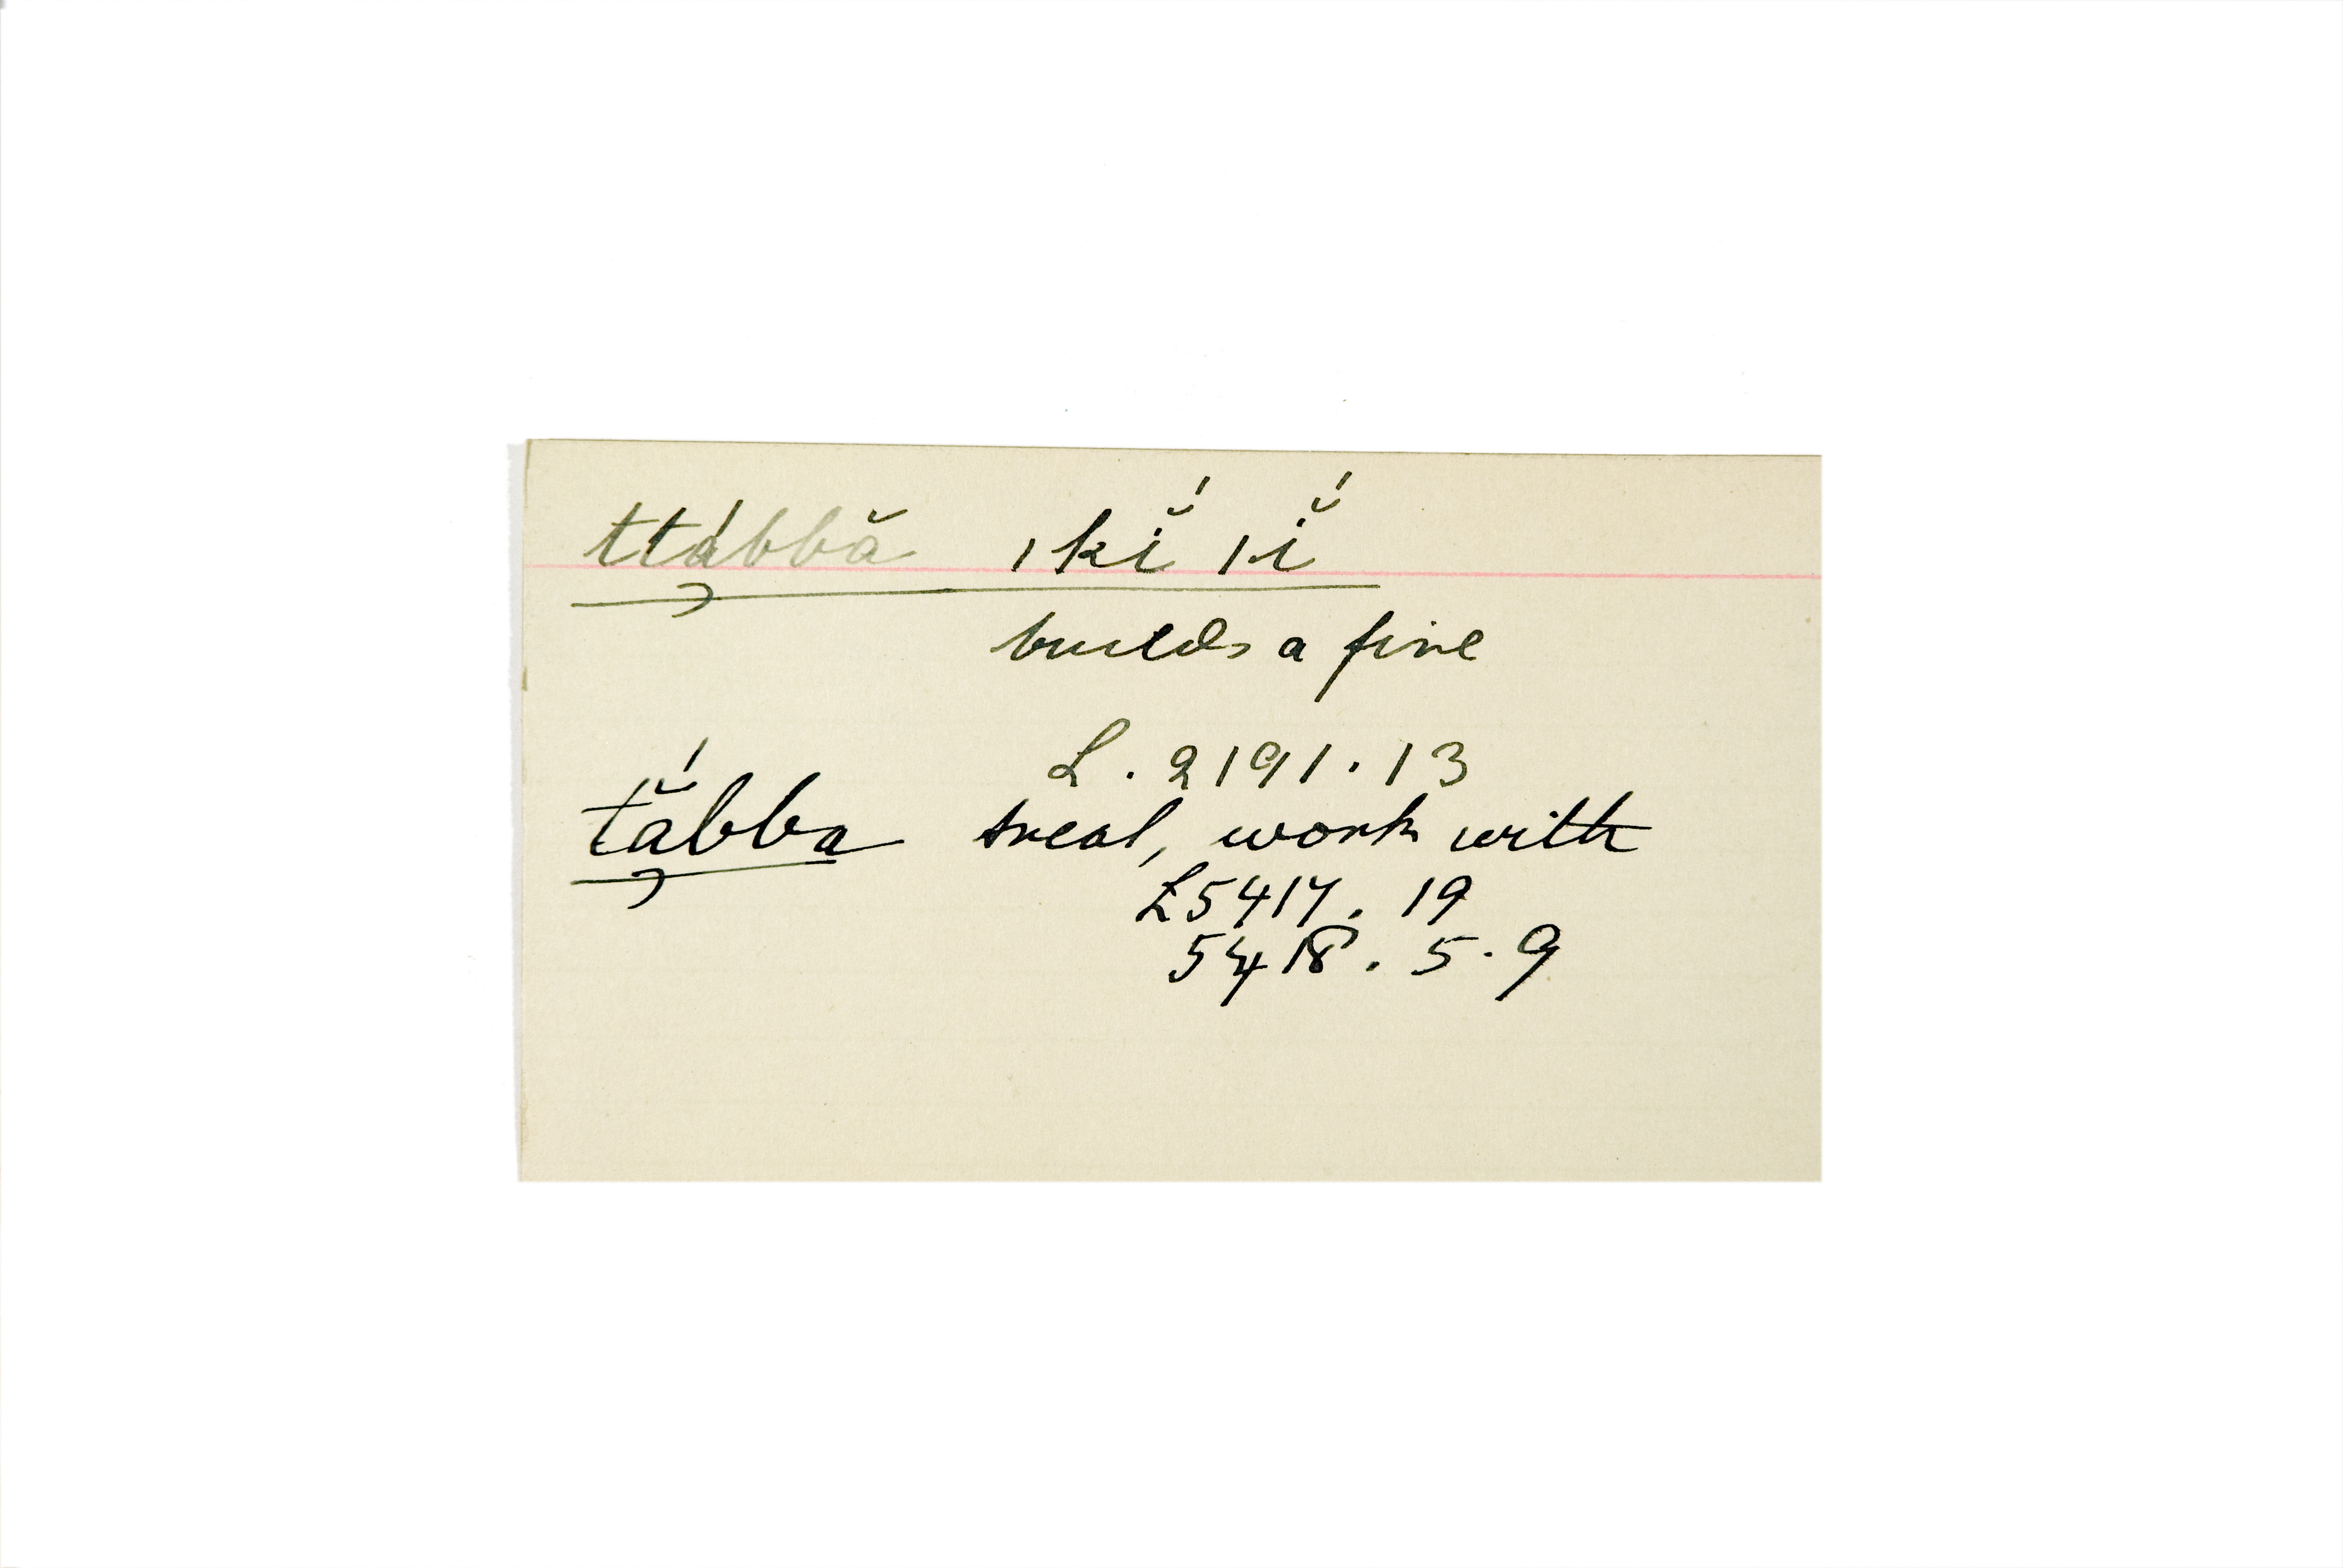 ttábbă ıkĭ́ ı‑ĭ́
builds a fire
L. 2191.13
tắbba treat, work with
L5417. 19
5418. 5. 9